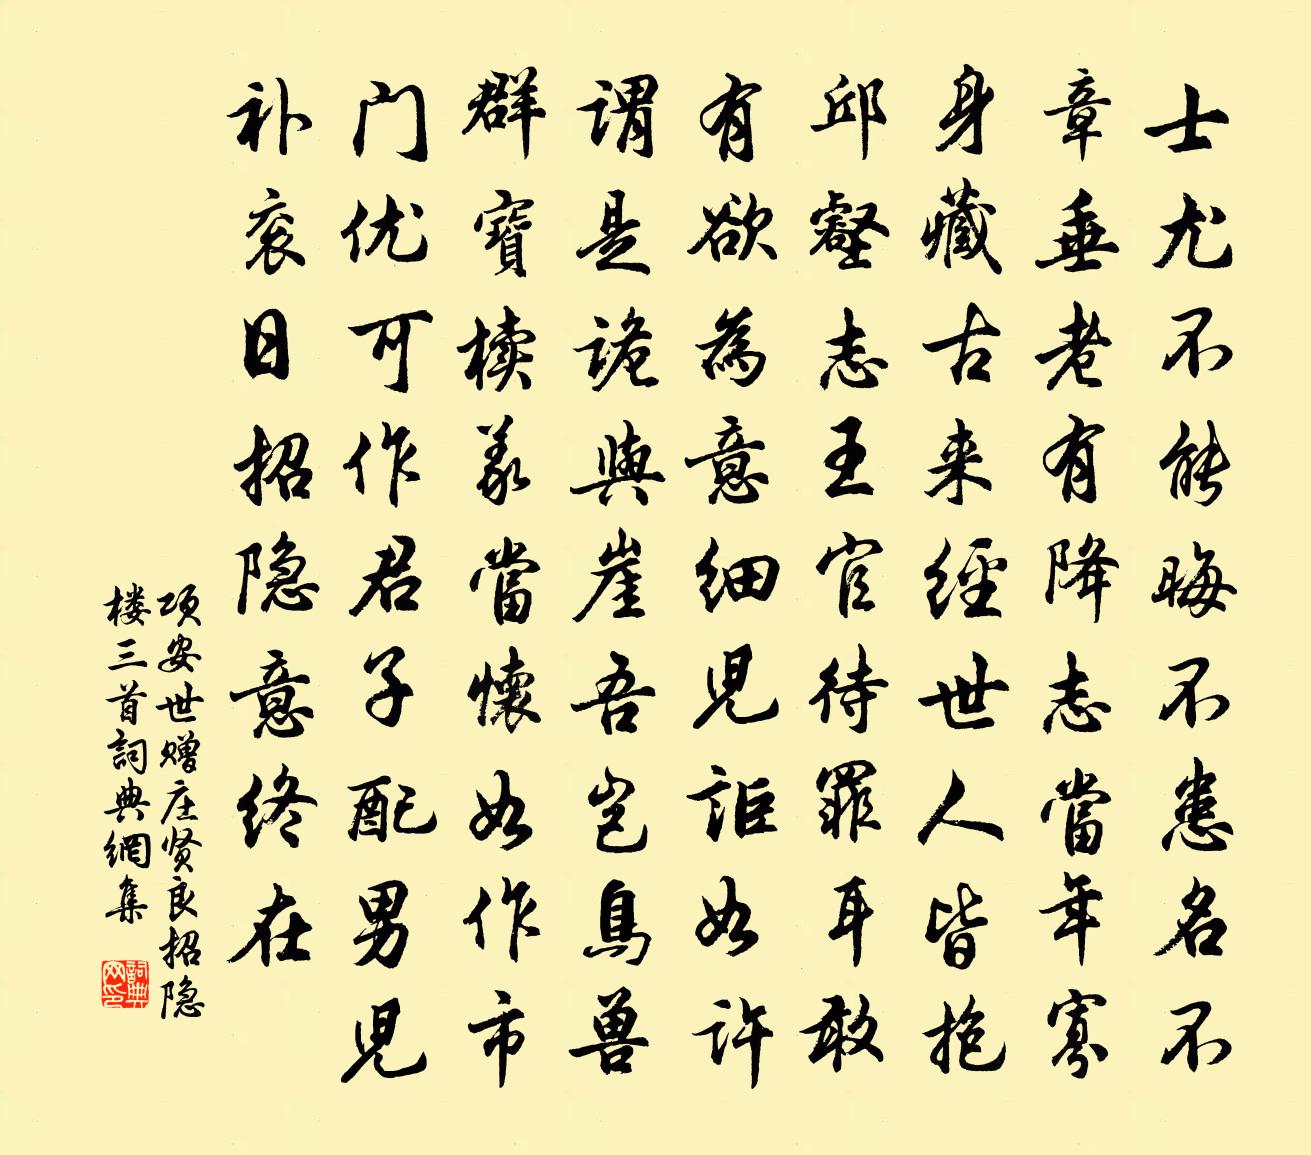 士尤不能晦不患名不
章垂老有降志當年寡
身藏古来經世人皆抱
邱壑志王官待罪耳敢
有欲為意細児詎如许
谓是诡與崖吾岂鳥兽
群寶櫝義當懷如作市
门优可作君子配男児
补衮日招隐意终在
项安世赠庄贤良招隐
楼三首詞典網集
詞典网印